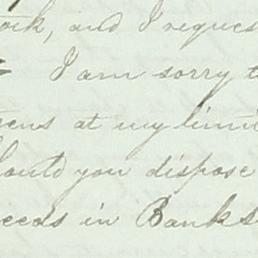 ock, and I reques
I am sorry t
rens at my limi
hould you dispose
ceeds in Banks